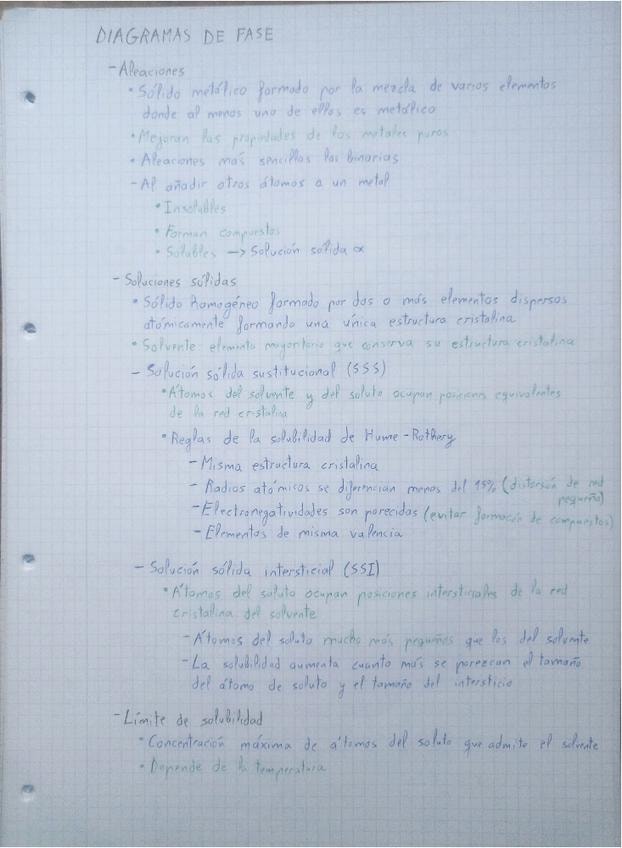 DIAGRAMAS DE FASE
- Aleaciones
• Sólido metálico formado por la mezcla de varios elementos
donde al menos uno de ellos es metálico
• Mejoran las propiedades de los metales puros
• Aleaciones más sencillas las binarias
- Al añadir otros átomos a un metal
• Insolubles
• Forman compuestos
• Solubles → Solución sólida α
- Soluciones sólidas
• Sólido homogéneo formado por dos o más elementos dispersos
atómicamente formando una única estructura cristalina
• Solvente elemento mayoritario que conserva su estructura cristalina
- Solución sólida sustitucional (SSS)
• Átomos del solvente y del soluto ocupan posiciones equivalentes
de la red cristalina
• Reglas de la solubilidad de Hume-Rothery
- Misma estructura cristalina
- Radios atómicos se diferencian menos del 15% (distorsión de red
pequeña)
- Electronegatividades son parecidas (evitar formación de compuestos)
- Elementos de misma valencia
- Solución sólida intersticial (SSI)
• Átomos del soluto ocupan posiciones intersticiales de la red
cristalina del solvente
- Átomos del soluto mucho más pequeños que los del solvente
- La solubilidad aumenta cuanto más se parezcan el tamaño
del átomo de soluto y el tamaño del intersticio
- Límite de solubilidad
• Concentración máxima de átomos del soluto que admite el solvente
• Depende de la temperatura